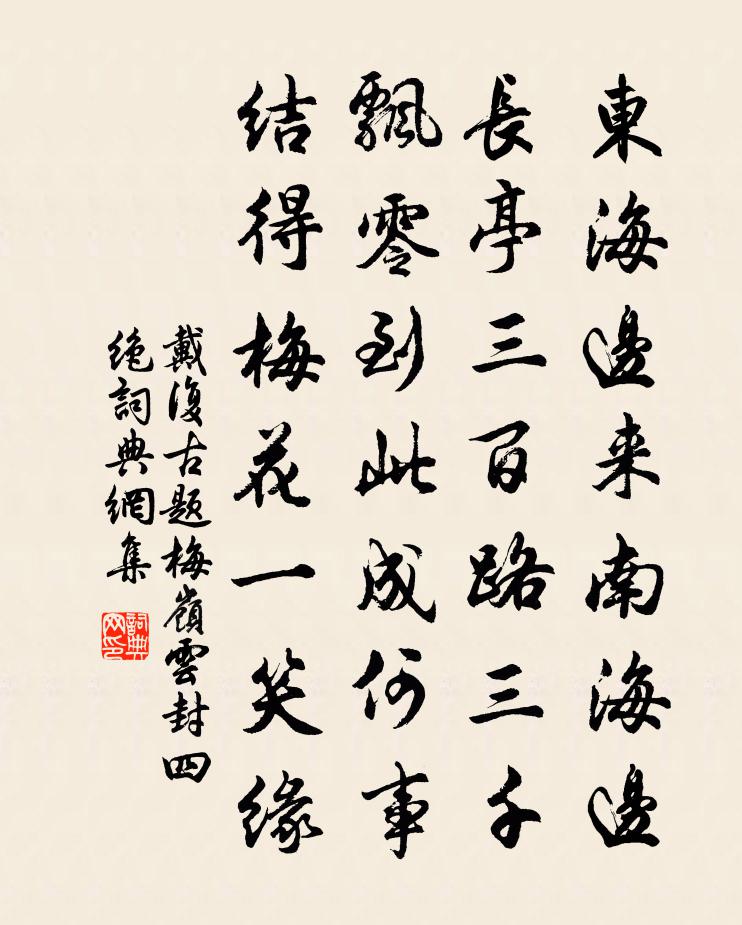 東海邊来南海邊
長亭三百路三千
飄零到此成何事
結得梅花一笑緣
戴復古题梅嶺雲封四
絶詞典網集
詞典
网印